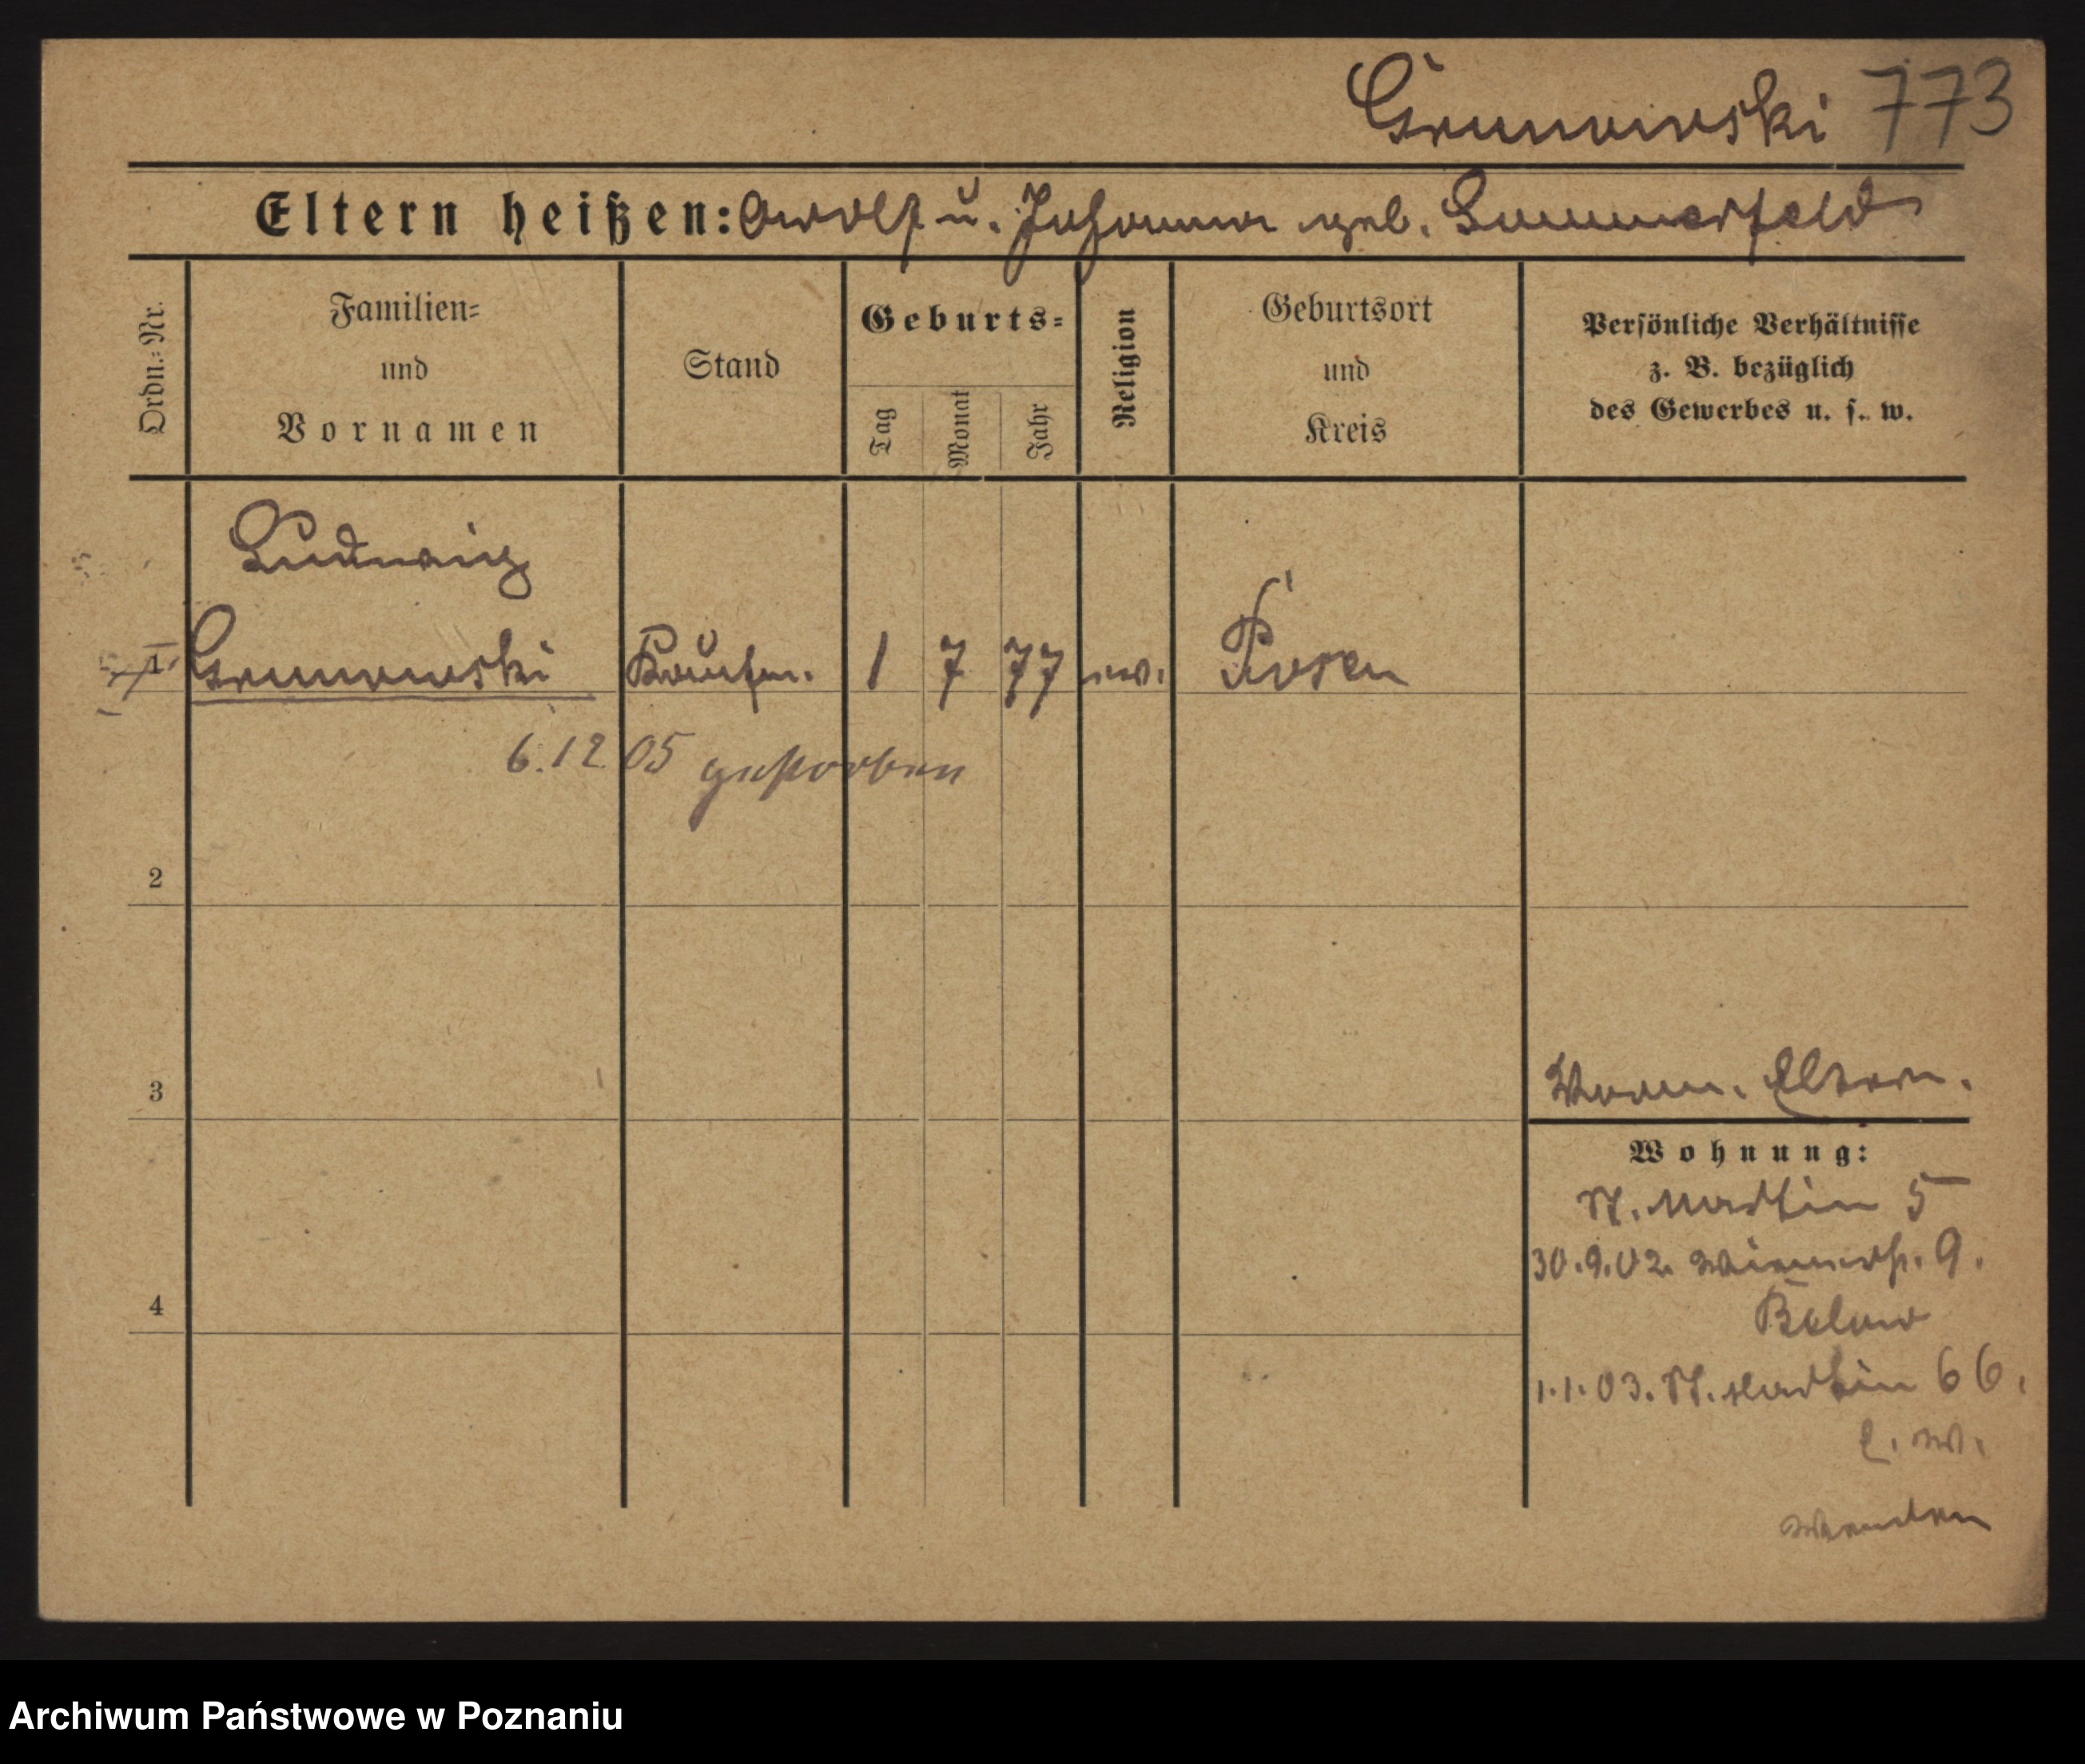 Grunowski 773
Eltern heißen: Adolf u. Johanna geb. Sommerfeld
Ordn.=Nr.
Familien=
und
Vornamen
Stand
Geburts=
Tag
Monat
Jahr
Religion
Geburtsort
und
Kreis
Persönliche Verhältnisse
z. B. bezüglich
des Gewerbes u. s. w.
Ludwig
1 Grunowski Kaufm. 1 7 77 Posen
6.12 05 gestorben
2
3
Eltern.
Wohnung:
St. Martin 5
30.9.02. 9.
1.1.03. St. Martin 66.
4
wenden
Archiwum Państwowe w Poznaniu